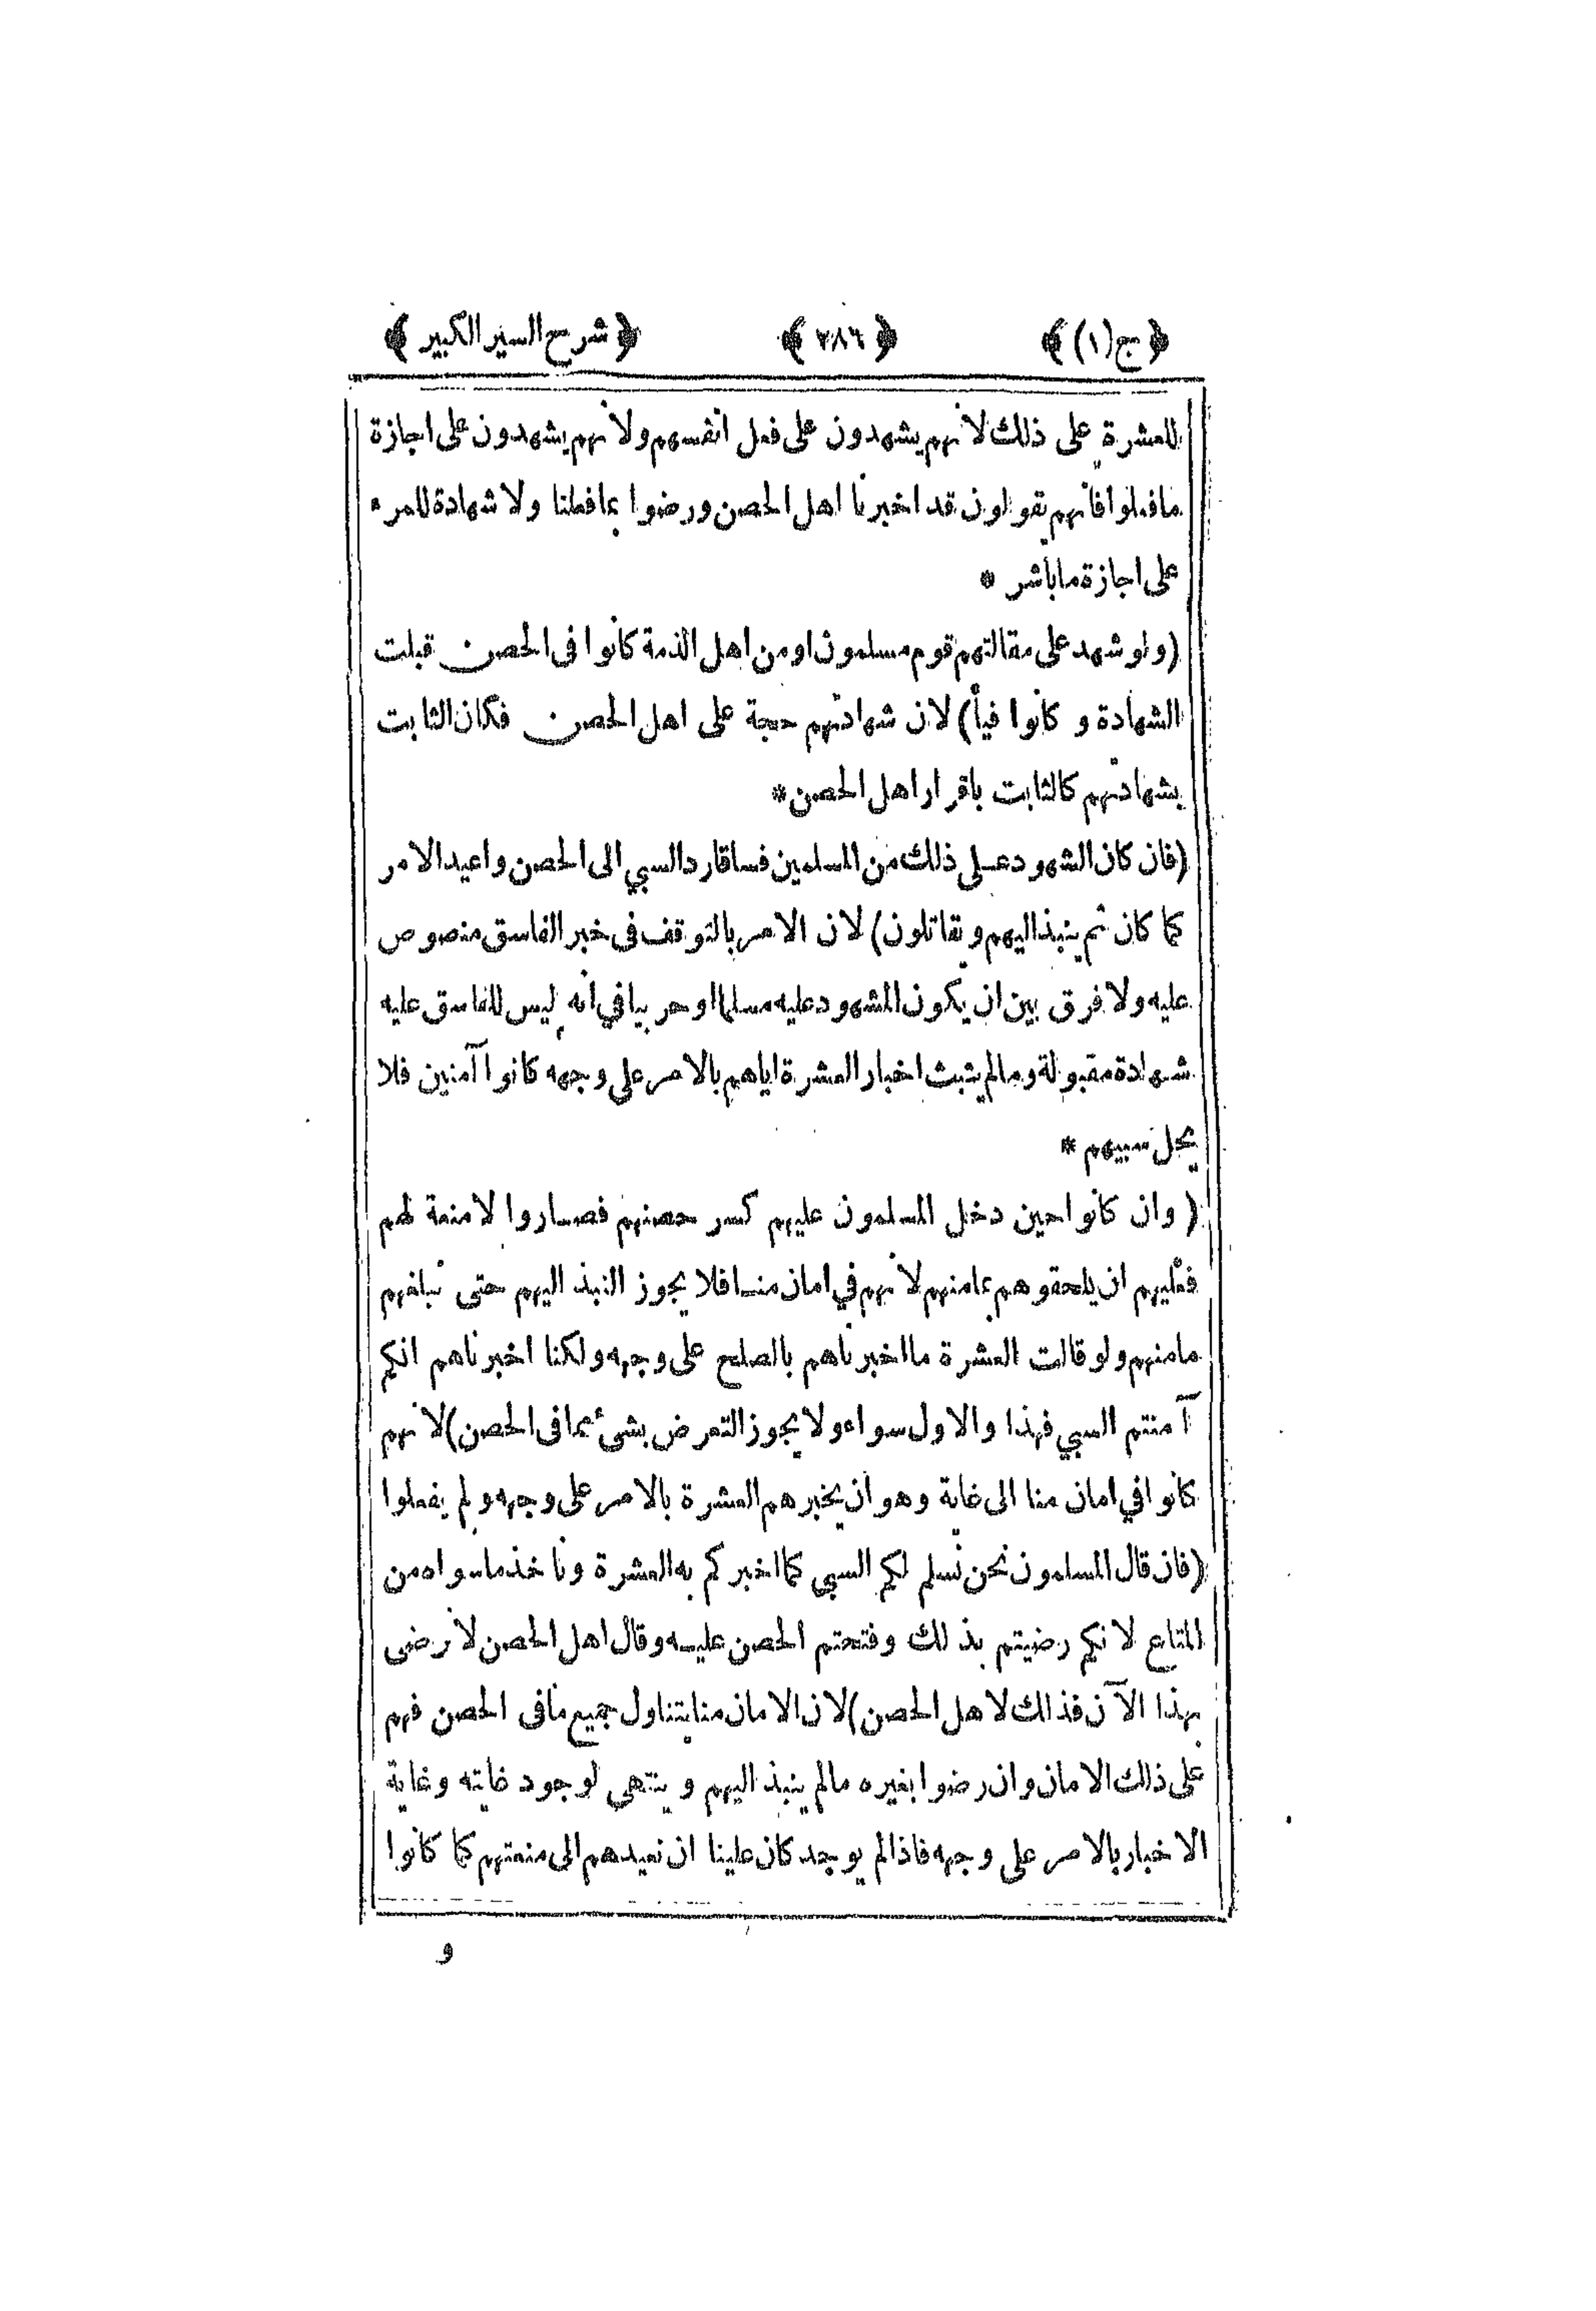 ﴿ ج(١) ﴾ ﴿ ٢٨٦ ﴾ ﴿ شرح السير الكبير ﴾
للعشرة على ذلك لأنهم يشهدون على فعل انفسهم ولأنهم يشهدون على اجازة
ما فعلوا فأنهم يقولون قد اخبرنا اهل الحصن ورضوا بما فعلنا ولا شهادة للمرء
على اجازة ما باشر *
(ولو شهد على مقالتهم قوم مسلمون او من اهل الذمة كانوا فى الحصن قبلت
الشهادة و كانوا فيأ) لان شهادتهم حجة على اهل الحصن فكان الثابت
بشهادتهم كالثابت باقرار اهل الحصن *
(فان كان الشهود على ذلك من المسلمين فساقا رد السبي الى الحصن واعيد الامر
كما كان ثم ينبذ اليهم ويقاتلون) لان الامر بالتوقف فى خبر الفاسق منصوص
عليه ولا فرق بين ان يكون المشهود عليه مسلما او حربيا في انه ليس للفاسق عليه
شهادة مقبولة وما لم يثبت اخبار العشرة اياهم بالامر على وجهه كانوا آمنين فلا
يحل سبيهم *
( وان كانوا حين دخل المسلمون عليهم كسر حصنهم فصاروا لا منعة لهم
فعليهم ان يلحقوهم بمامنهم لأنهم في امان منا فلا يجوز النبذ اليهم حتى نبلغهم
مامنهم ولو قالت العشرة ما اخبرناهم بالصلح على وجهه ولكنا اخبرناهم انكم
آمنتم السبي فهذا والاول سواء ولا يجوز التعرض بشئ مما فى الحصن) لانهم
كانوا في امان منا الى غاية وهو ان يخبرهم العشرة بالامر على وجهه ولم يفعلوا
(فان قال المسلمون نحن نسلم لكم السبي كما اخبركم به العشرة وناخذ ما سواه من
المتاع لانكم رضيتم بذلك وفتحتم الحصن عليه وقال اهل الحصن لا نرضى
بهذا الآن فذلك لاهل الحصن) لان الامان منا يتناول جميع ما فى الحصن فهم
على ذلك الامان وان رضوا بغيره ما لم ينبذ اليهم و ينتهى لوجود غايته وغاية
الاخبار بالامر على وجهه فاذا لم يوجد كان علينا ان نعيدهم الى منعتهم كما كانوا
و